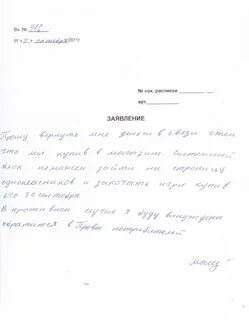 Вх. № 912
от «5» октября 201
№ сох. расписки
арт.
ЗАЯВЛЕНИЕ
Прошу вернуть мне деньги в свези стем
что мы купив в магазине системной
блок неможем зайти на страницу
однокласников и закачать игре купив
его 30 сентября.
В противном случие я буду вынуждены
обратится в Права потребителей